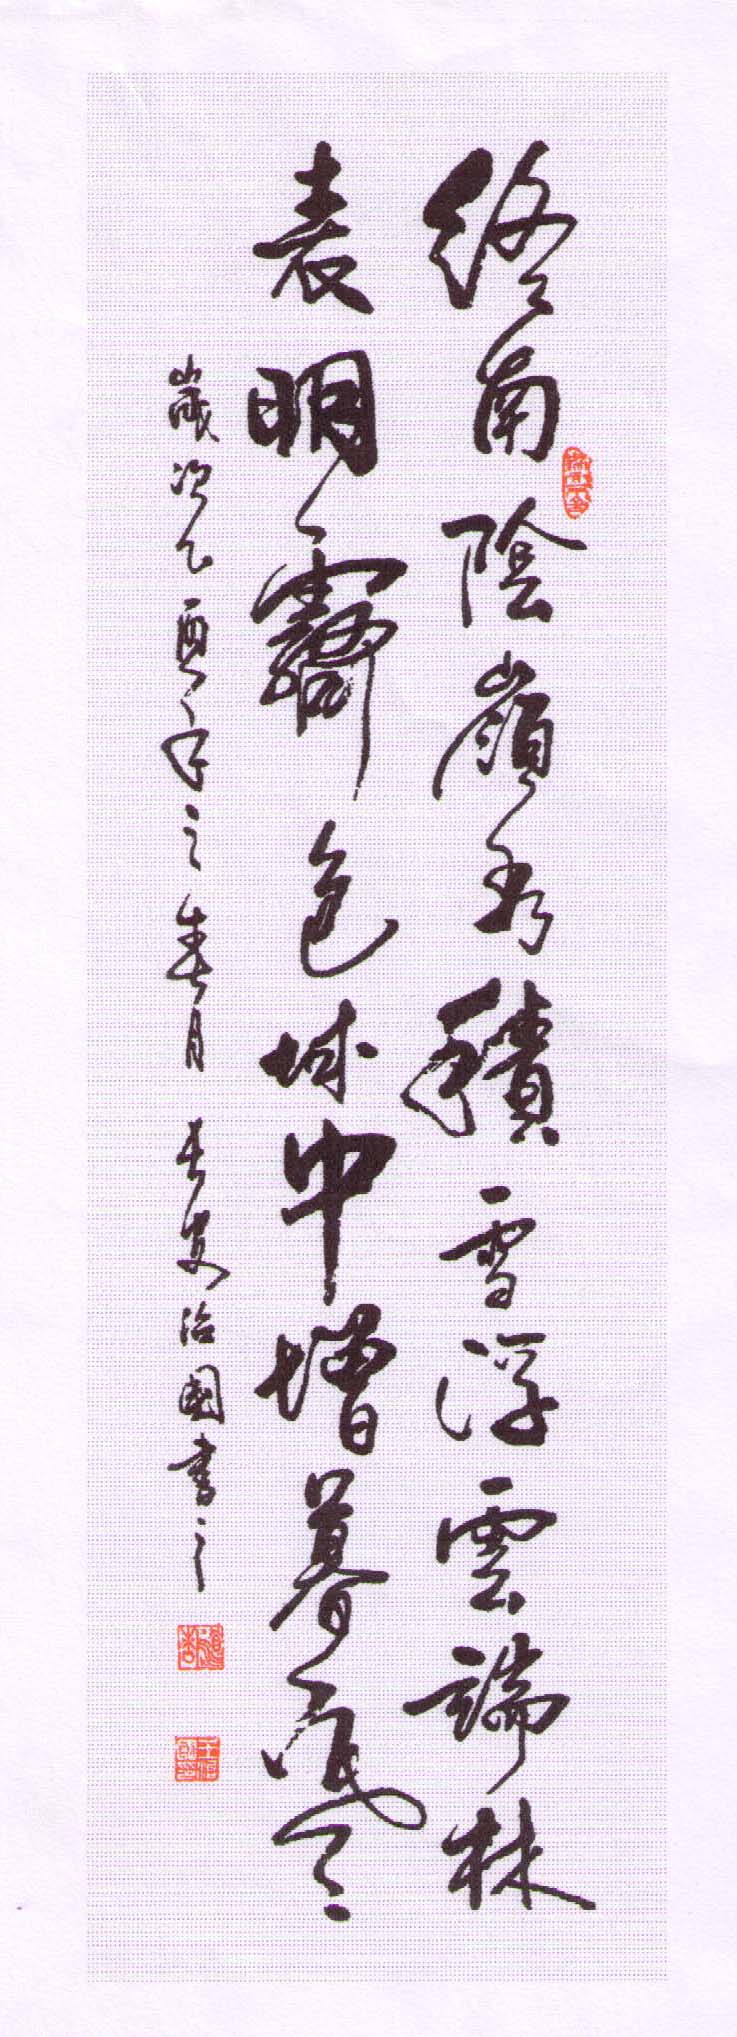 終南陰嶺秀積雪浮雲端林
表明霽色城中增暮寒
歲次乙酉年之春月長安治國書之